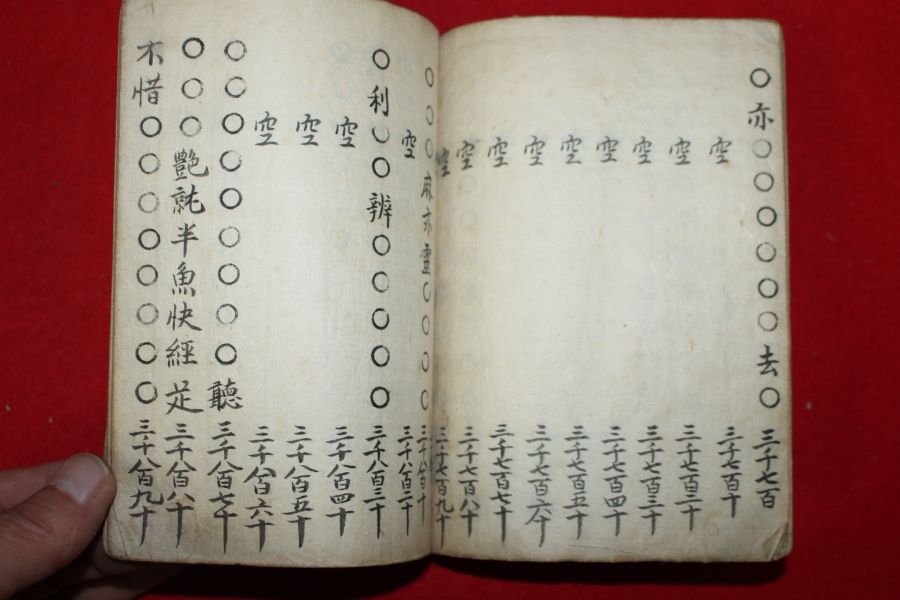 ○亦○○○○○○去○ 三千七百
空 三千七百十
空 三千七百二十
空 三千七百三十
空 三千七百四十
空 三千七百五十
空 三千七百六十
空 三千七百七十
空 三千七百八十
空 三千七百九十
○○○麻亦靈○○○○ 三千八百十
空 三千八百二十
○利○○辨○○○○○ 三千八百三十
空 三千八百四十
空 三千八百五十
空 三千八百六十
○○○○○○○○○聽 三千八百七十
○○○艶就半魚快經足 三千八百八十
不惜○○○○○○○○ 三千八百九十